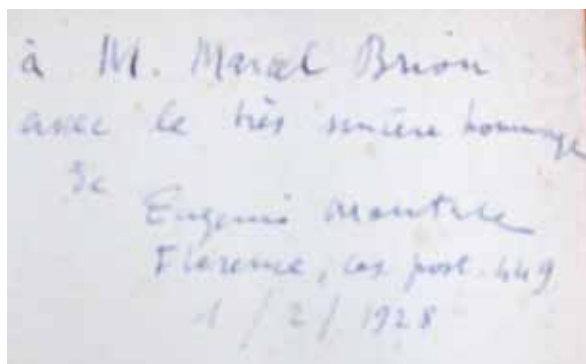 à M. Marcel Brion
avec le très sincère hommage
de
Eugenio Montale
Florence, cas. post. 449
1 / 2 / 1928